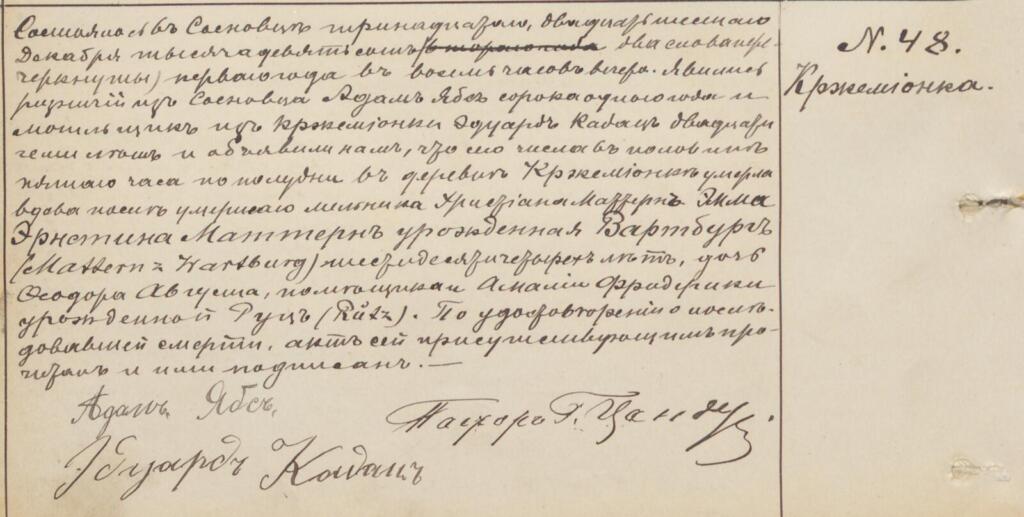 Состоялось въ Сосновицѣ тринадцатаго, двадцать шестаго
Декабря тысяча девятьсотъ (втораго года два слова пере-
черкнуты) перваго года въ восемь часовъ вечера. Явились
рѣзничій изъ Сосновца Адамъ Ябсъ сорока одного года и
мошльщикъ изъ Кржеміонки Эдуардъ Кадацъ двадцати
семи лѣтъ и объявили намъ, что сего числа въ половинѣ
пятаго часа по полудни въ деревнѣ Кржеміонкѣ умерла
вдова послѣ умершаго мельника Христіана Маттернъ Эмма
Эрнстина Маттернъ урожденная Вартбургъ
(Mattern z Wartburg) шестидесяти четырехъ лѣтъ, дочь
Ѳеодора Августа, помѣщика и Амаліи Фридерики
урожденной Руцъ (Rütz). По удостовѣреніи о послѣ-
довавшей смерти, актъ сей присутствующимъ про-
читанъ и ими подписанъ. —
Адамъ Ябсъ,
Пасторъ Г. Цандеръ.
Эдуардъ Кадацъ
N. 48.
Кржеміонка.